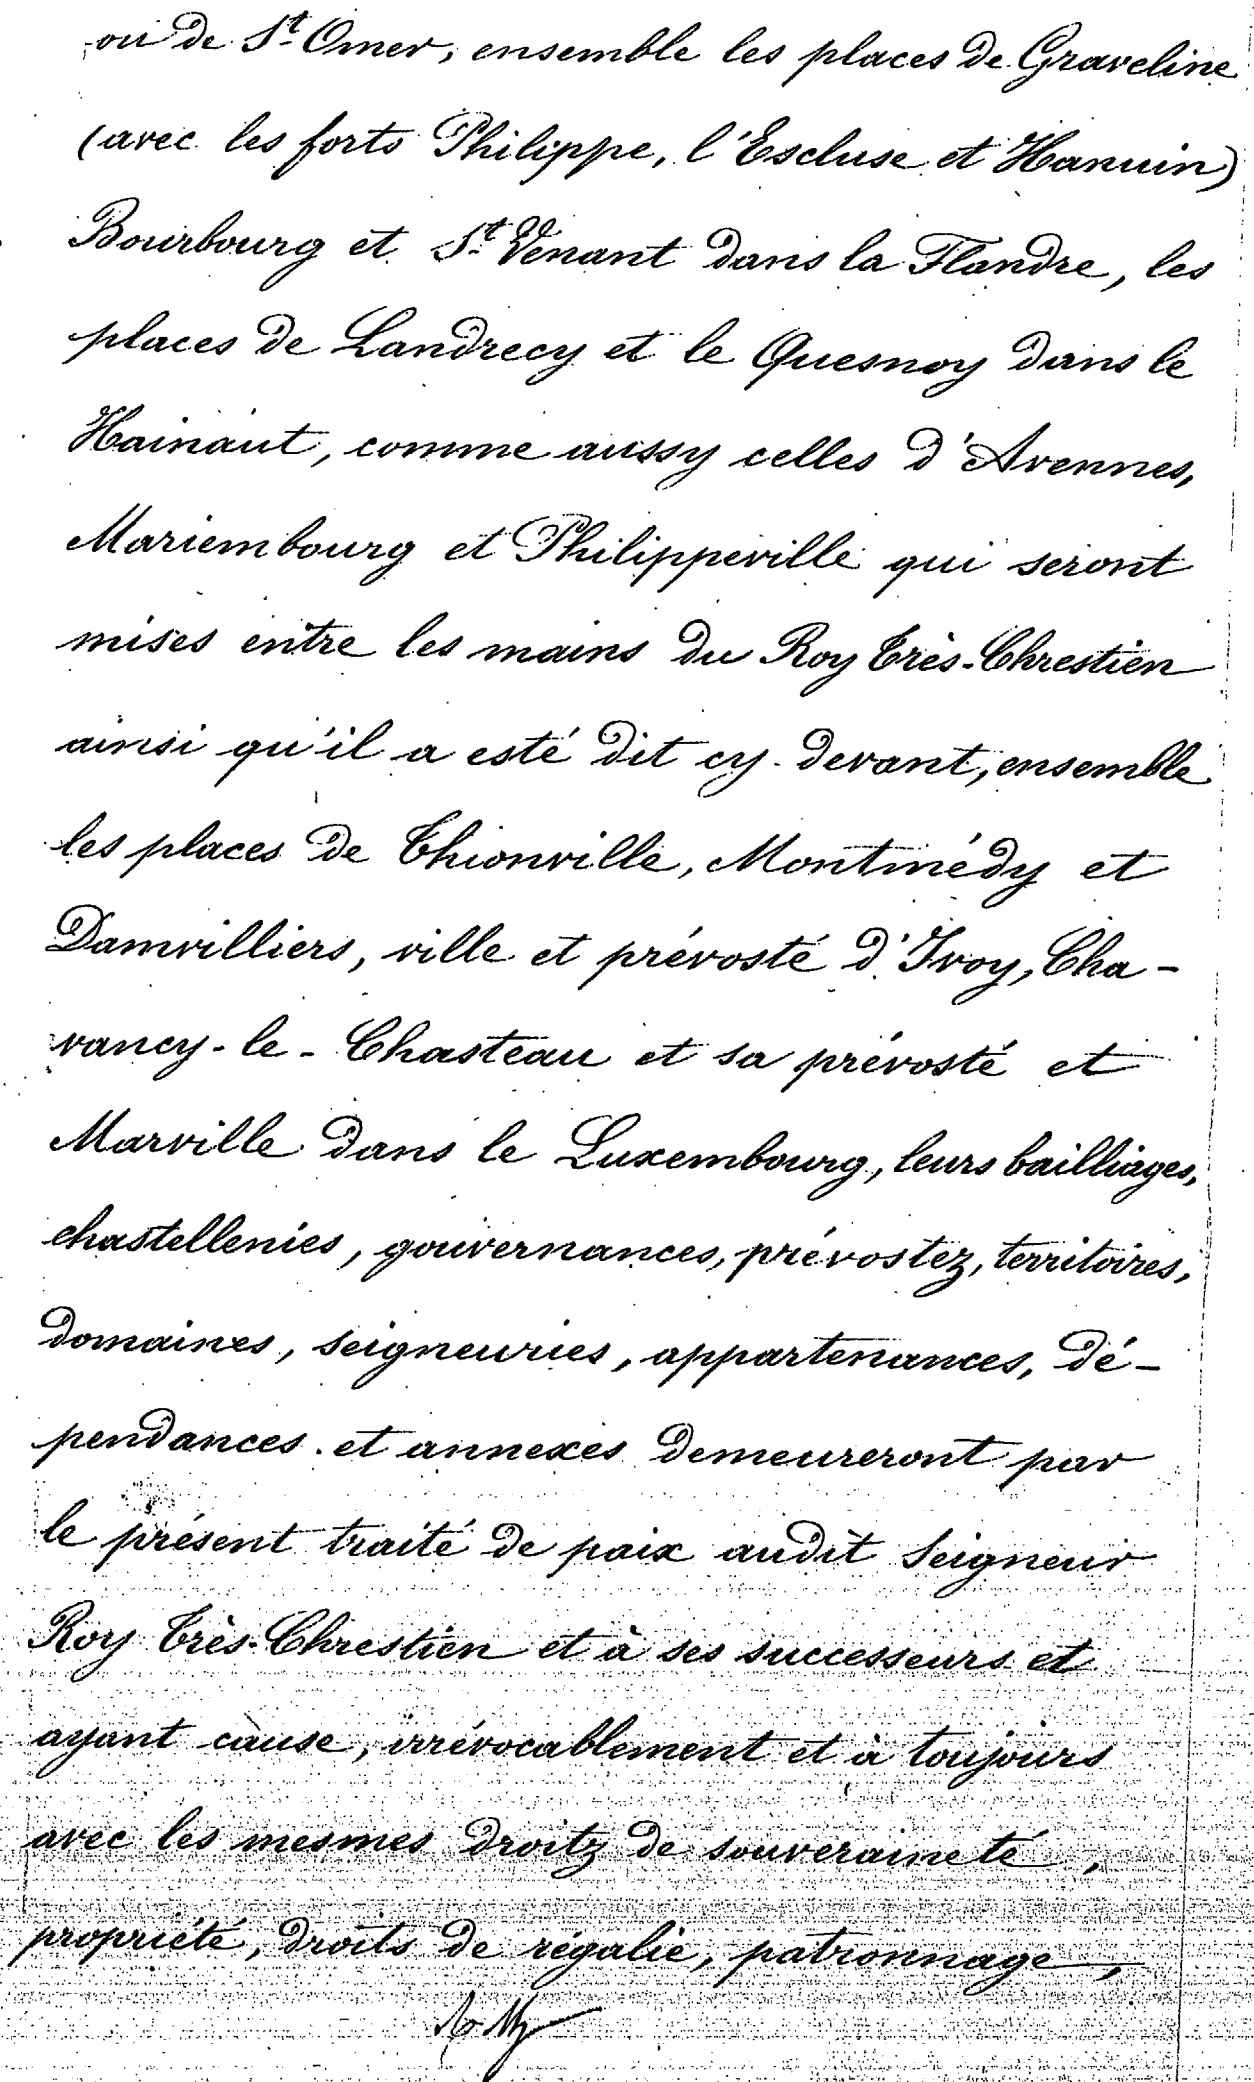 ou de St Omer, ensemble les places de Graveline
(avec les forts Philippe, l'Escluse et Hanuin)
Bourbourg et St Venant dans la Flandre, les
places de Landrecy et le Quesnoy dans le
Hainaut, comme aussy celles d'Avennes,
Mariembourg et Philippeville qui seront
mises entre les mains du Roy Très-Chrestien
ainsi qu'il a esté dit cy-devant, ensemble
les places de Thionville, Montmédy et
Damvilliers, ville et prévosté d'Ivoy, Cha-
vancy-le-Chasteau et sa prévosté et
Marville dans le Luxembourg, leurs bailliages,
chastellenies, gouvernances, prévostez, territoires,
domaines, seigneuries, appartenances, dé-
pendances et annexes demeureront par
le présent traité de paix audit Seigneur
Roy Très-Chrestien et à ses successeurs et
ayant cause, irrévocablement et à toujours
avec les mesmes droitz de souveraineté,
propriété, droits de régalie, patronnage,